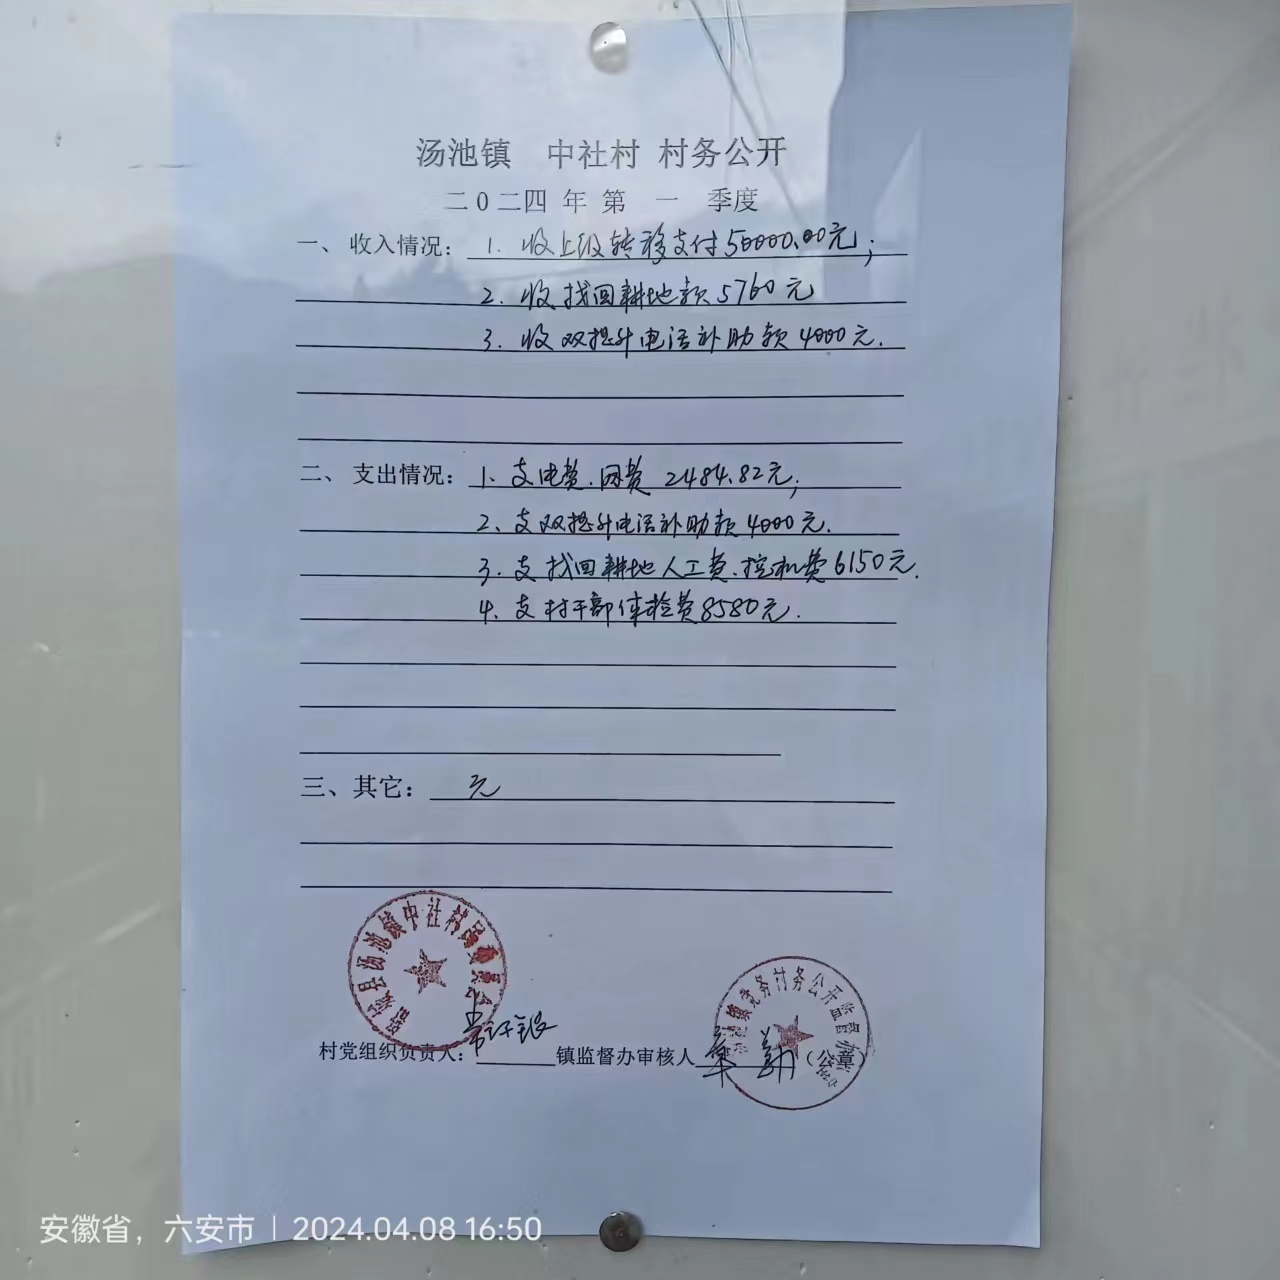 汤池镇 中社村 村务公开
二0二四 年 第 一 季度
一、 收入情况： 1. 收上级转移支付50000.00元；
2. 收找回耕地款5760元
3. 收双提升电话补助款4000元.
二、 支出情况： 1、支电费、网费 2484.82元；
2、支双提升电话补助款4000元.
3. 支找回耕地人工费、挖机费6150元.
4、支村干部体检费8580元.
三、其它： 元
舒城县汤池镇中社村民委员会
汤池镇党务村务公开监督
村党组织负责人： 镇监督办审核人 （公章）
安徽省，六安市 | 2024.04.08 16:50